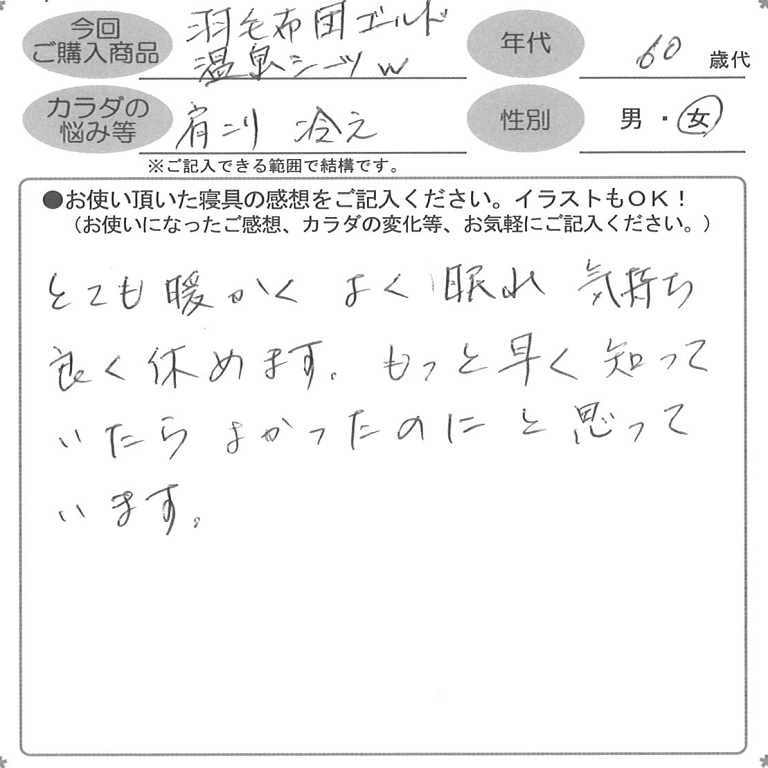 今回
ご購入商品
羽毛布団ゴールド
温泉シーツW
年代
60 歳代
カラダの
悩み等
肩こり 冷え
性別
男・女
※ご記入できる範囲で結構です。
●お使い頂いた寝具の感想をご記入ください。イラストもOK！
（お使いになったご感想、カラダの変化等、お気軽にご記入ください。）
とても暖かく よく眠れ 気持ち
良く休めます。もっと早く知って
いたら よかったのに と思って
います。